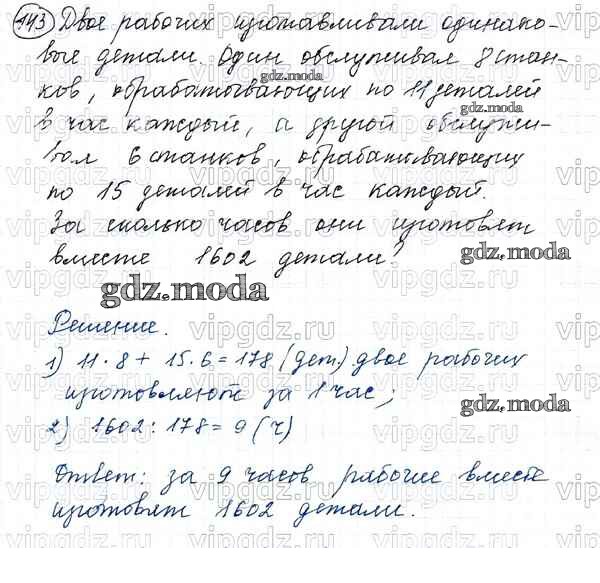 143 Двое рабочих изготавливали одинако-
вые детали. Один обслуживал 8 стан-
ков, обрабатывающих по 11 деталей
в час каждый, а другой обслужи-
вал 6 станков, обрабатывающих
по 15 деталей в час каждый.
За сколько часов они изготовят
вместе 1602 детали?
gdz.moda
Решение.
1) 11·8 + 15·6 = 178 (дет.) двое рабочих
изготовляют за 1 час;
2) 1602 : 178 = 9 (ч)
Ответ: за 9 часов рабочие вместе
изготовят 1602 детали.